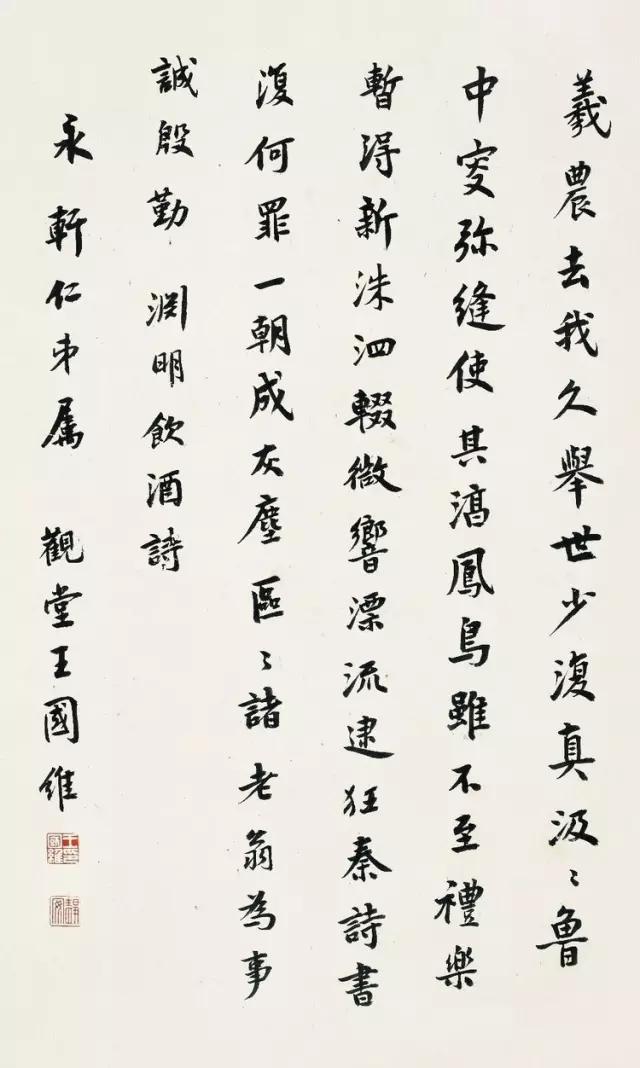 羲農去我久舉世少復真汲〻魯
中叟弥縫使其淳鳳鳥雖不至禮樂
暫得新洙泗輟微響漂流逮狂秦詩書
復何罪一朝成灰塵區〻諸老翁為事
誠殷勤 淵明飲酒詩
永軒仁弟屬 觀堂王國維
王國維
靜安